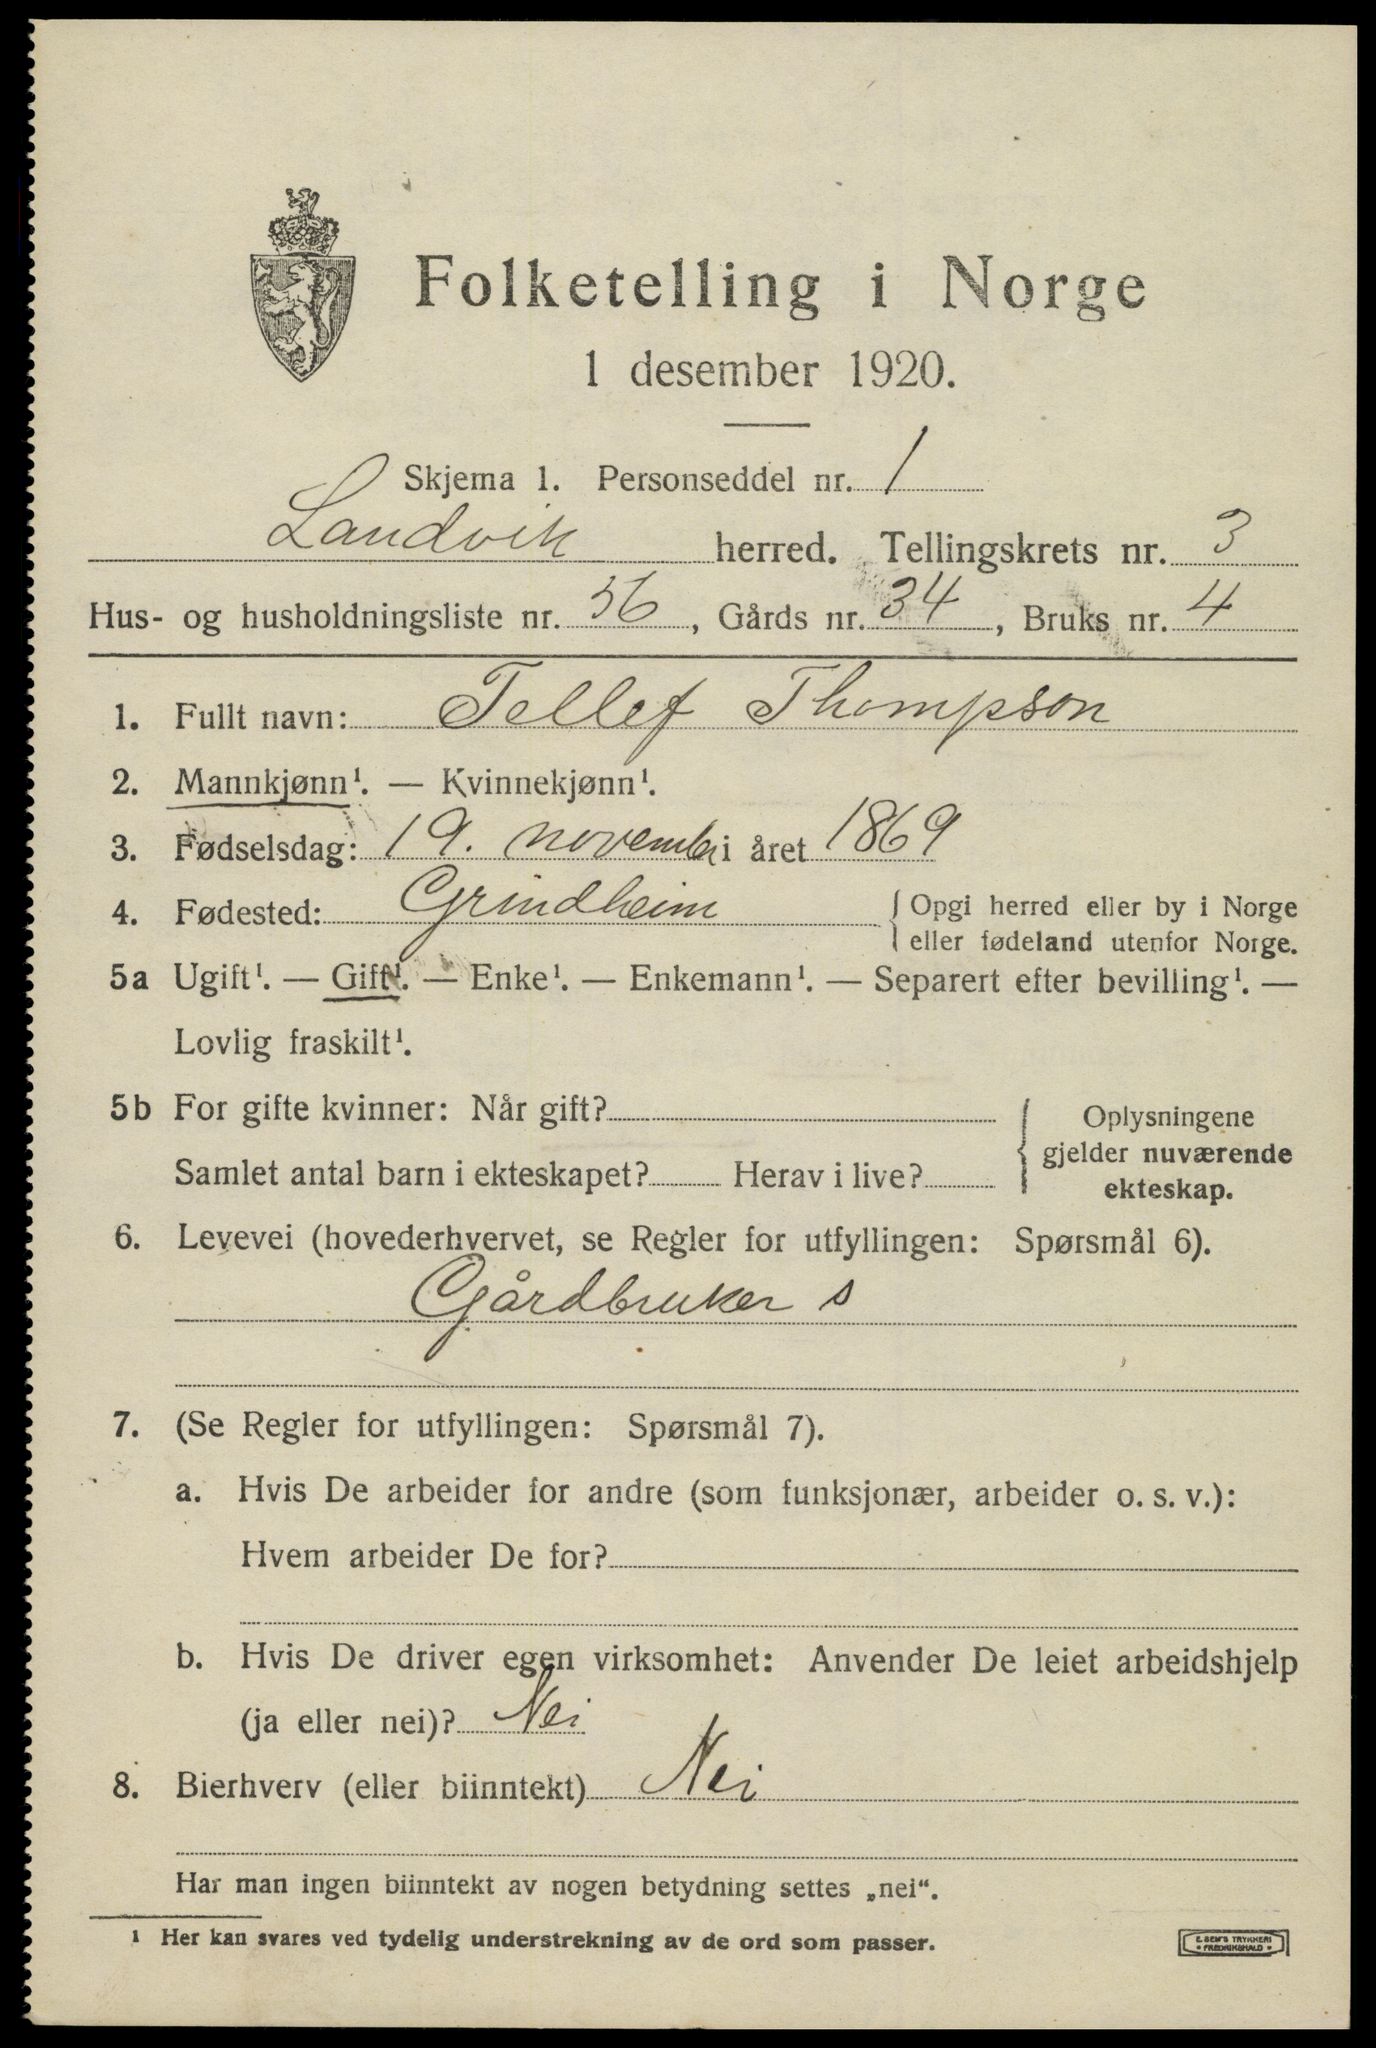 Folketelling i Norge
1 desember 1920.
Skjema 1. Personseddel nr. 1
Landvik herred. Tellingskrets nr. 3
Hus- og husholdningsliste nr. 56, Gårds nr. 34, Bruks nr. 4
1. Fullt navn: Tellef Thompson
2. Mannkjønn¹. — Kvinnekjønn¹.
3. Fødselsdag: 19. november i året 1869
4. Fødested: Grindheim { Opgi herred eller by i Norge
eller fødeland utenfor Norge.
5a Ugift¹. — Gift¹. — Enke¹. — Enkemann¹. — Separert efter bevilling¹. —
Lovlig fraskilt¹.
5b For gifte kvinner: Når gift?
Samlet antal barn i ekteskapet? Herav i live?
Oplysningene
gjelder nuværende
ekteskap.
6. Levevei (hovederhvervet, se Regler for utfyllingen: Spørsmål 6).
Gårdbruker s
7. (Se Regler for utfyllingen: Spørsmål 7).
a. Hvis De arbeider for andre (som funksjonær, arbeider o. s. v.):
Hvem arbeider De for?
b. Hvis De driver egen virksomhet: Anvender De leiet arbeidshjelp
(ja eller nei)? Nei
8. Bierhverv (eller biinntekt) Nei
Har man ingen biinntekt av nogen betydning settes „nei“.
¹ Her kan svares ved tydelig understrekning av de ord som passer.
E. SEM'S TRYKKERI
* FREDRIKSHALD *